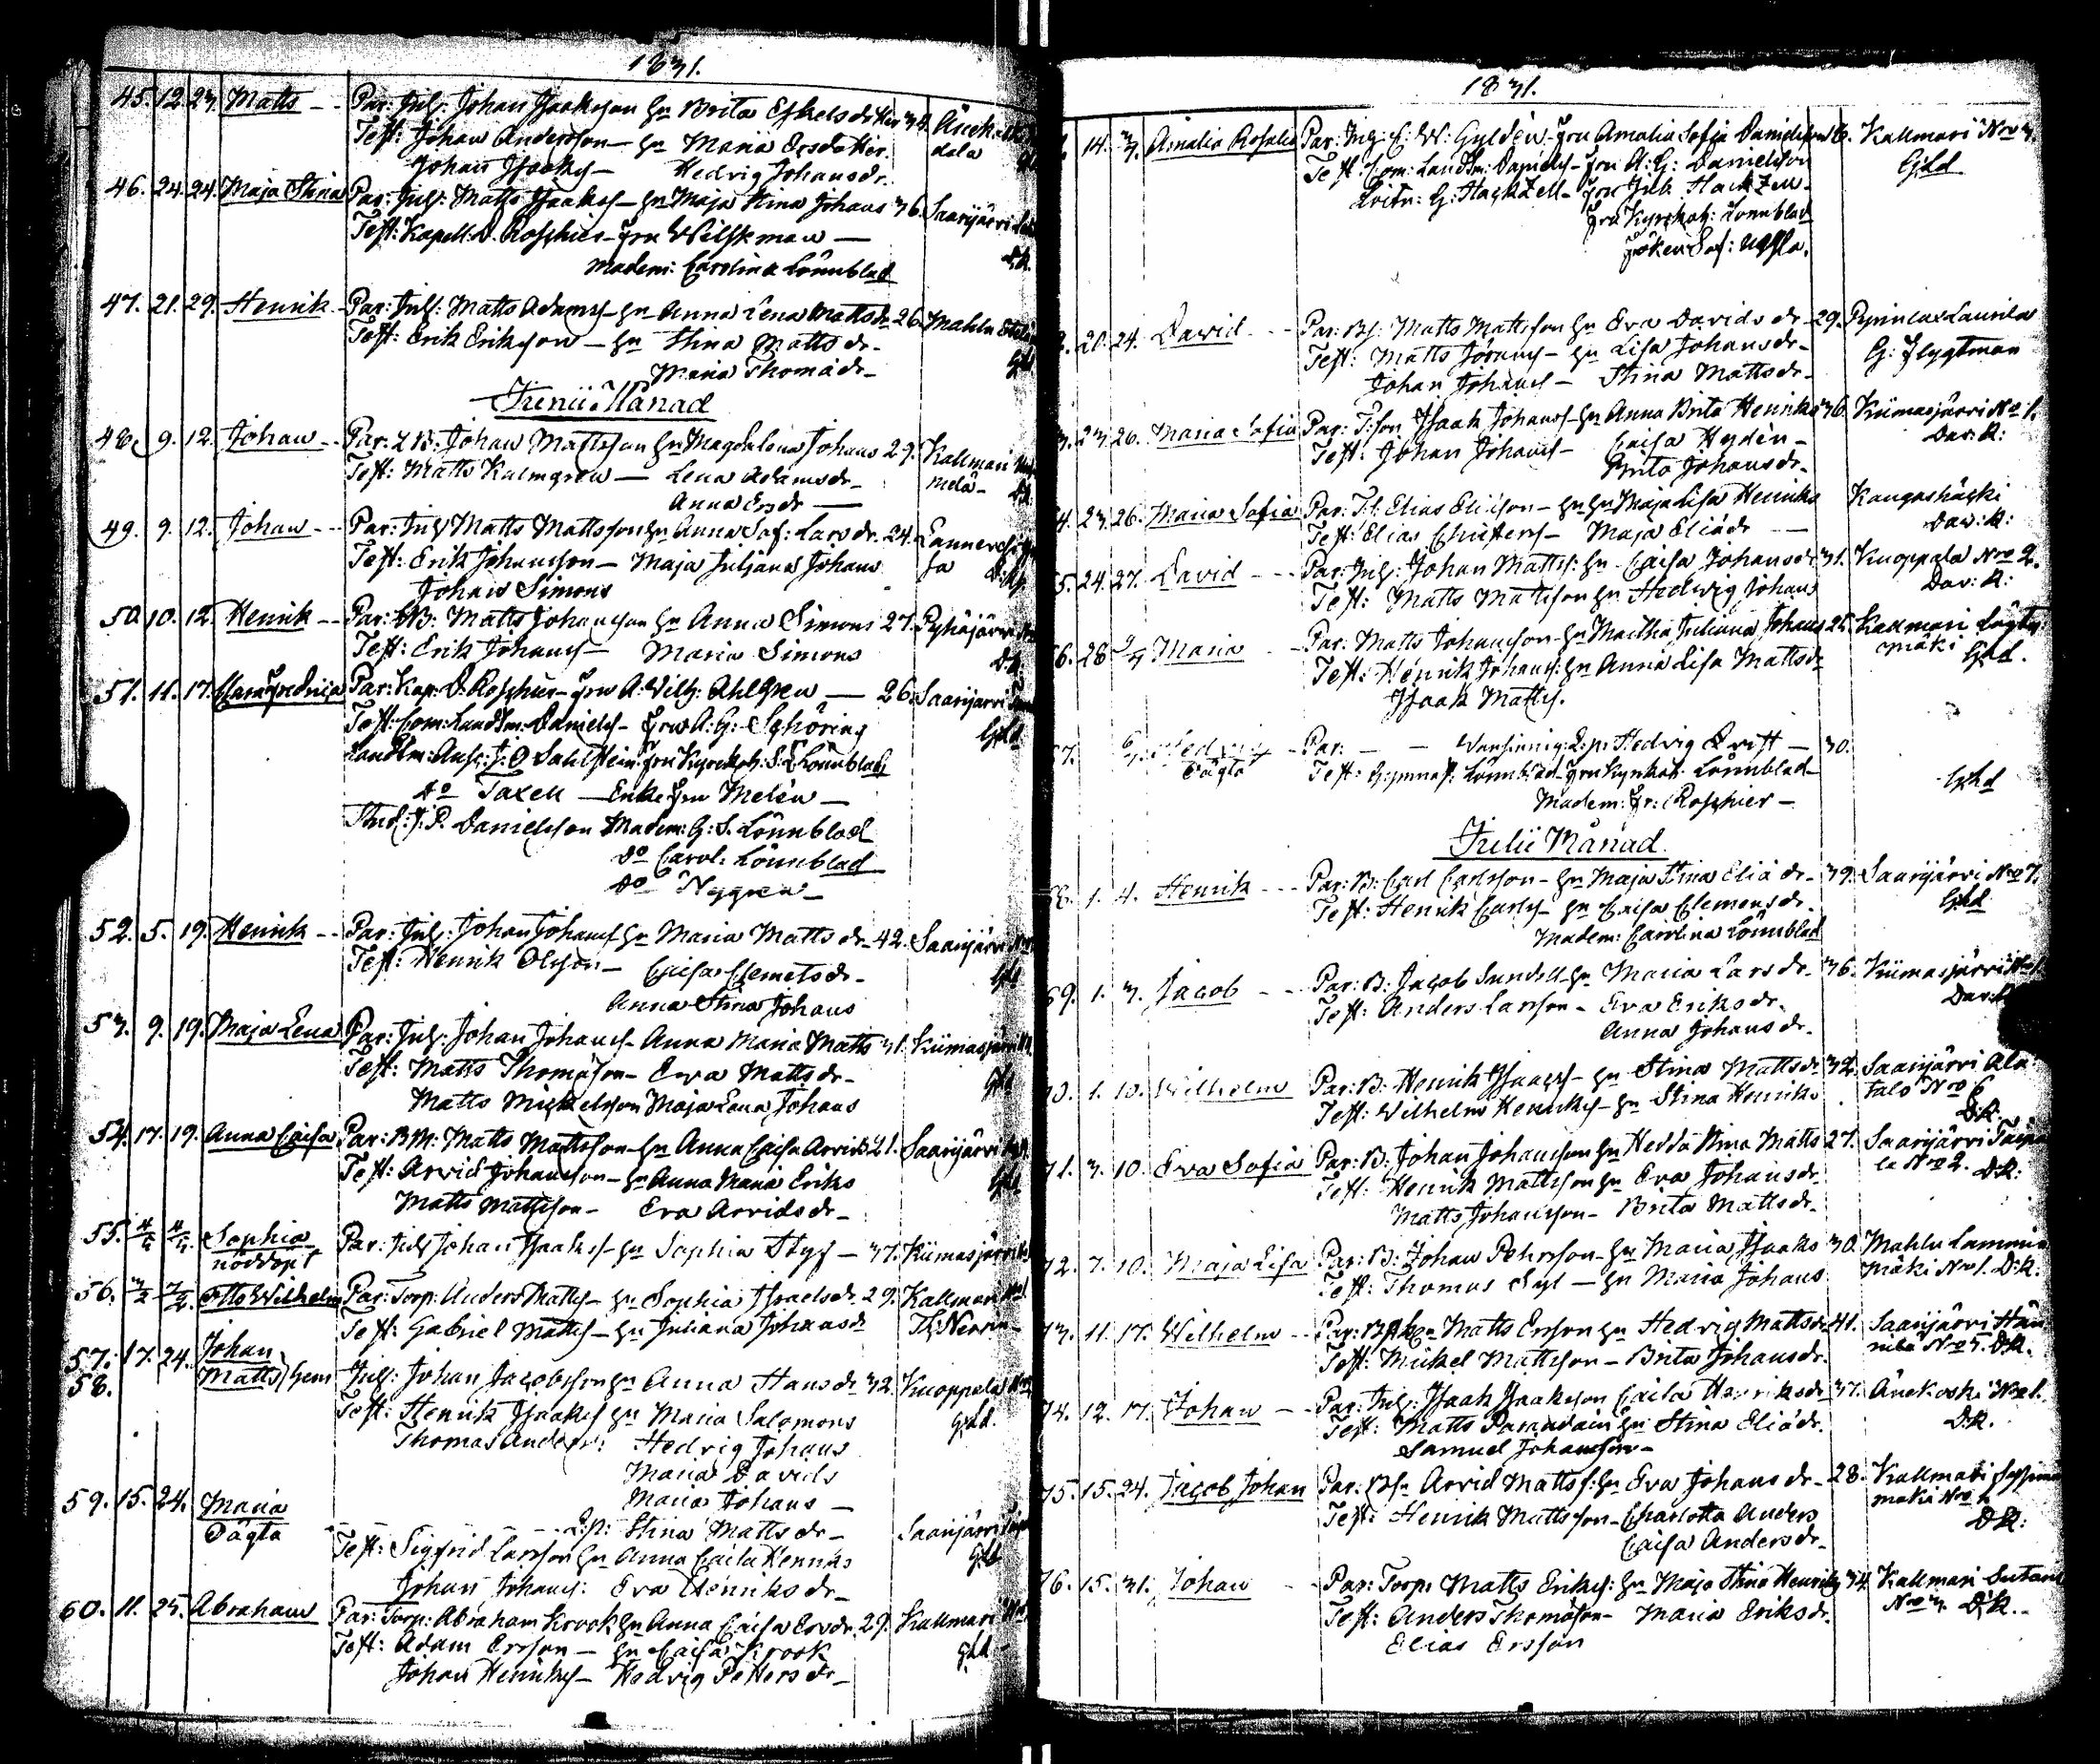 1831.
45. 12. 23. Matts -- Par: Inh: Johan Isaksson hu Brita Eskelsdotter 34. Änekos
Test: Johan Andersson - hu Maria Ersdotter. dala
Johan Isaaks - Hedvig Johansdr.
46. 24. 24. Maja Stina Par: Inh: Matts Isaaks - hu Maja Stina Johans 36. Saarijärvi
Test: Kapell: D. Roschier - fru Wilskman - DK.
Madem: Carolina Lönnblad
47. 21. 29. Henrik - Par: Inh: Matts Adams - hu Anna Lena Mattsdr 26. Mahlu
Test: Erik Eriksson - hu Stina Matts dr - Ghd
Maria Thomädr -
Junii Månad
48. 9. 12. Johan -- Par: LB: Johan Mattsson hu Magdalena Johans 29. Kallmari
Test: Matts Kalmgren - Lena Adamsdr - DK.
Anna Ersdr -
49. 9. 12. Johan -- Par: Inh Matts Mattsson hu Anna Sof: Larsdr. 24. Lannevesi
Test: Erik Johansson - Maja Juliana Johans
Johan Simons
50. 10. 12. Henrik -- Par: B: Matts Johansson hu Anna Simons 27. Pyhäjärvi
Test: Erik Johans - Maria Simons DK.
51. 11. 17. Clara Fredrica Par: Kap: D. Roschier - fru A: Vilh: Ahlgren - 26. Saarijärvi
Test: Com: Landtm: Daniels - fru A: G: Schöring Ghd
Landtm: Ausc: J: O Sahlstein fru Kyrckoh: S: E Lönnblad
do Taxell - Enke fru Melén -
Stud: J: P. Danielsson Madem: G: S. Lönnblad
do Carol: Lönnblad
do Nygren -
52. 5. 19. Henrik -- Par: Inh: Johan Johans hu Maria Matts dr 42. Saarijärvi
Test: Henrik Olsson - Caisa Clemetsdr - Ghd
Anna Stina Johans
53. 9. 19. Maja Lena Par: Inh: Johan Johans - Anna Maria Matts 31. Kiimasjärvi
Test: Matts Thomäson - Eva Matts dr - Ghd
Matts Mickelsson Maja Lena Johans
54. 17. 19. Anna Caisa Par: BM: Matts Mattsson - hu Anna Caisa Arvids 21. Saarijärvi
Test: Arvid Johansson - hu Anna Maria Eriks Ghd
Matts Mattsson - Eva Arvids dr -
55. Sophia Par: Inh Johan Isaaks - hu Sophia Styf - 37. Kiimasjärvi
nöddöpt
56. Otto Wilhelm Par: Torp: Anders Matts - hu Sophia Israelsdr 29. Kallmari
Test: Gabriel Matts - hu Juliana Johansdr
57. 17. 24. Johan
58. Matts Gem Inh: Johan Jacobsson hu Anna Hansdr 32. Kuoppala
Test: Henrik Isaaks hu Maria Salomons Ghd.
Thomas Anders: Hedvig Johans
Maria Davids
Maria Johans -
59. 15. 24. Maria -- Q:p: Stina Mattsdr - Saarijärvi
Oägta Test: Sigfrid Larsson hu Anna Caisa Henriks Ghd
Johan Johans: Eva Henriks dr -
60. 11. 25. Abraham Par: Torp: Abraham Krook hu Anna Caisa Ersdr. 29. Kallmari
Test: Adam Ersson - hu Caisa Krook Ghd
Johan Henriks - Hedvig Pettersdr -
1831.
14. Amalia Rosalia Par: Ing: C: W: Gyldén - fru Amalia Sofia Danielsson 6. Kallmari No 3.
Test: Com: Landtm: Daniels - fru A: G: Danielsson Ghd
Leitn: G: Hackzell - fru Jul: Hackzell -
fru Kyrckoh: Lönnblad
fröken Sof:
20. 24. David -- Par: Bs: Matts Mattsson hu Eva Davids dr 29. Laurila
Test: Matts Görans - hu Lisa Johansdr - G: Flygtman
Johan Johans - Stina Mattsdr -
23. 26. Maria Sofia Par: T:son Isaak Johans - hu Anna Brita Henriks 36. Kiimasjärvi No 1.
Test: Johan Johans - Caisa Hydén - Dav: K:
Brita Johansdr -
4. 23. 26. Maria Sofia Par: T.l. Elias Eliäson - hu Maja Lisa Henriks Kangashäcki
Test: Elias Christers - Maja Eliädr - Dav: K:
5. 24. 27. David -- Par: Inh: Johan Matts: hu - Caisa Johansdr 31. Kuoppala No 2.
Test: Matts Mattsson hu Hedvig Johans Dav: K:
66. 28 Maria - Par: Matts Johansson - hu Martha Juliana Johans 25. Kallmari Lögty
Test: Henrik Johans: hu Anna Lisa Mattsdr mäki Ghd.
Isaak Matts.
67. Hedvig - Par: - - Vansinnig: Q:p: Hedvig Qvist - 30.
Oägta Test: Gymnas: Lönnblad - fru Kyrkoh: Lönnblad - Ghd
Madem: Fr: Roschier -
Julii Månad
68. 1. 4. Henrik -- Par: B: Carl Carlsson - hu Maja Stina Eliädr - 39. Saarijärvi No 7.
Test: Henrik Carls - hu Caisa Clemensdr. Ghd
Madem: Carolina Lönnblad
69. 1. 3. Jacob -- Par: B: Jacob Sundell hu Maria Larsdr - 36. Kiimasjärvi
Test: Anders Larsson - Eva Eriksdr.
Anna Johansdr -
70. 1. 10. Wilhelm Par: B: Henrik Isaacs - hu Stina Mattsdr 32. Saarijärvi Ala
Test: Wilhelm Henriks - hu Stina Henriks talo No 6 DK.
71. 3. 10. Eva Sofia Par: B: Johan Johansson hu Hedda Stina Matts 27. Saarijärvi
Test: Henrik Mattsson hu Eva Johansdr le No 2. DK:
Matts Johansson - Brita Mattsdr -
72. 7. 10. Maja Lisa Par: B: Johan Pehrsson - hu Maria Isaaks 30. Mahlu Lammin
Test: Thomas Sigl - hu Maria Johans mäki No 1. DK:
73. 11. 17. Wilhelm - Par: Matts Ersson hu Hedvig Mattsdr 41. Saarijärvi Hän
Test: Mickel Mattsson - Brita Johansdr. nilä No 5. DK.
74. 12. 17. Johan -- Par: Inh: Isaak Isaaksson Caisa Henriksdr 37. Änekoski No 1.
Test: Matts Paradain hu Stina Eliädr. DK.
Samuel Johansson -
75. 15. 24. Jacob Johan Par: Bs: Arvid Matts: hu Eva Johansdr - 28. Kallmari
Test: Henrik Mattsson - Charlotta Anders mäki No DK:
Caisa Andersdr -
76. 15. 31. Johan -- Par: Torp: Matts Eriks: hu Maja Stina Henriks 34. Kallmari
Test: Anders Thomäson - Maria Eriksdr. No 3 DK. -
Elias Ersson